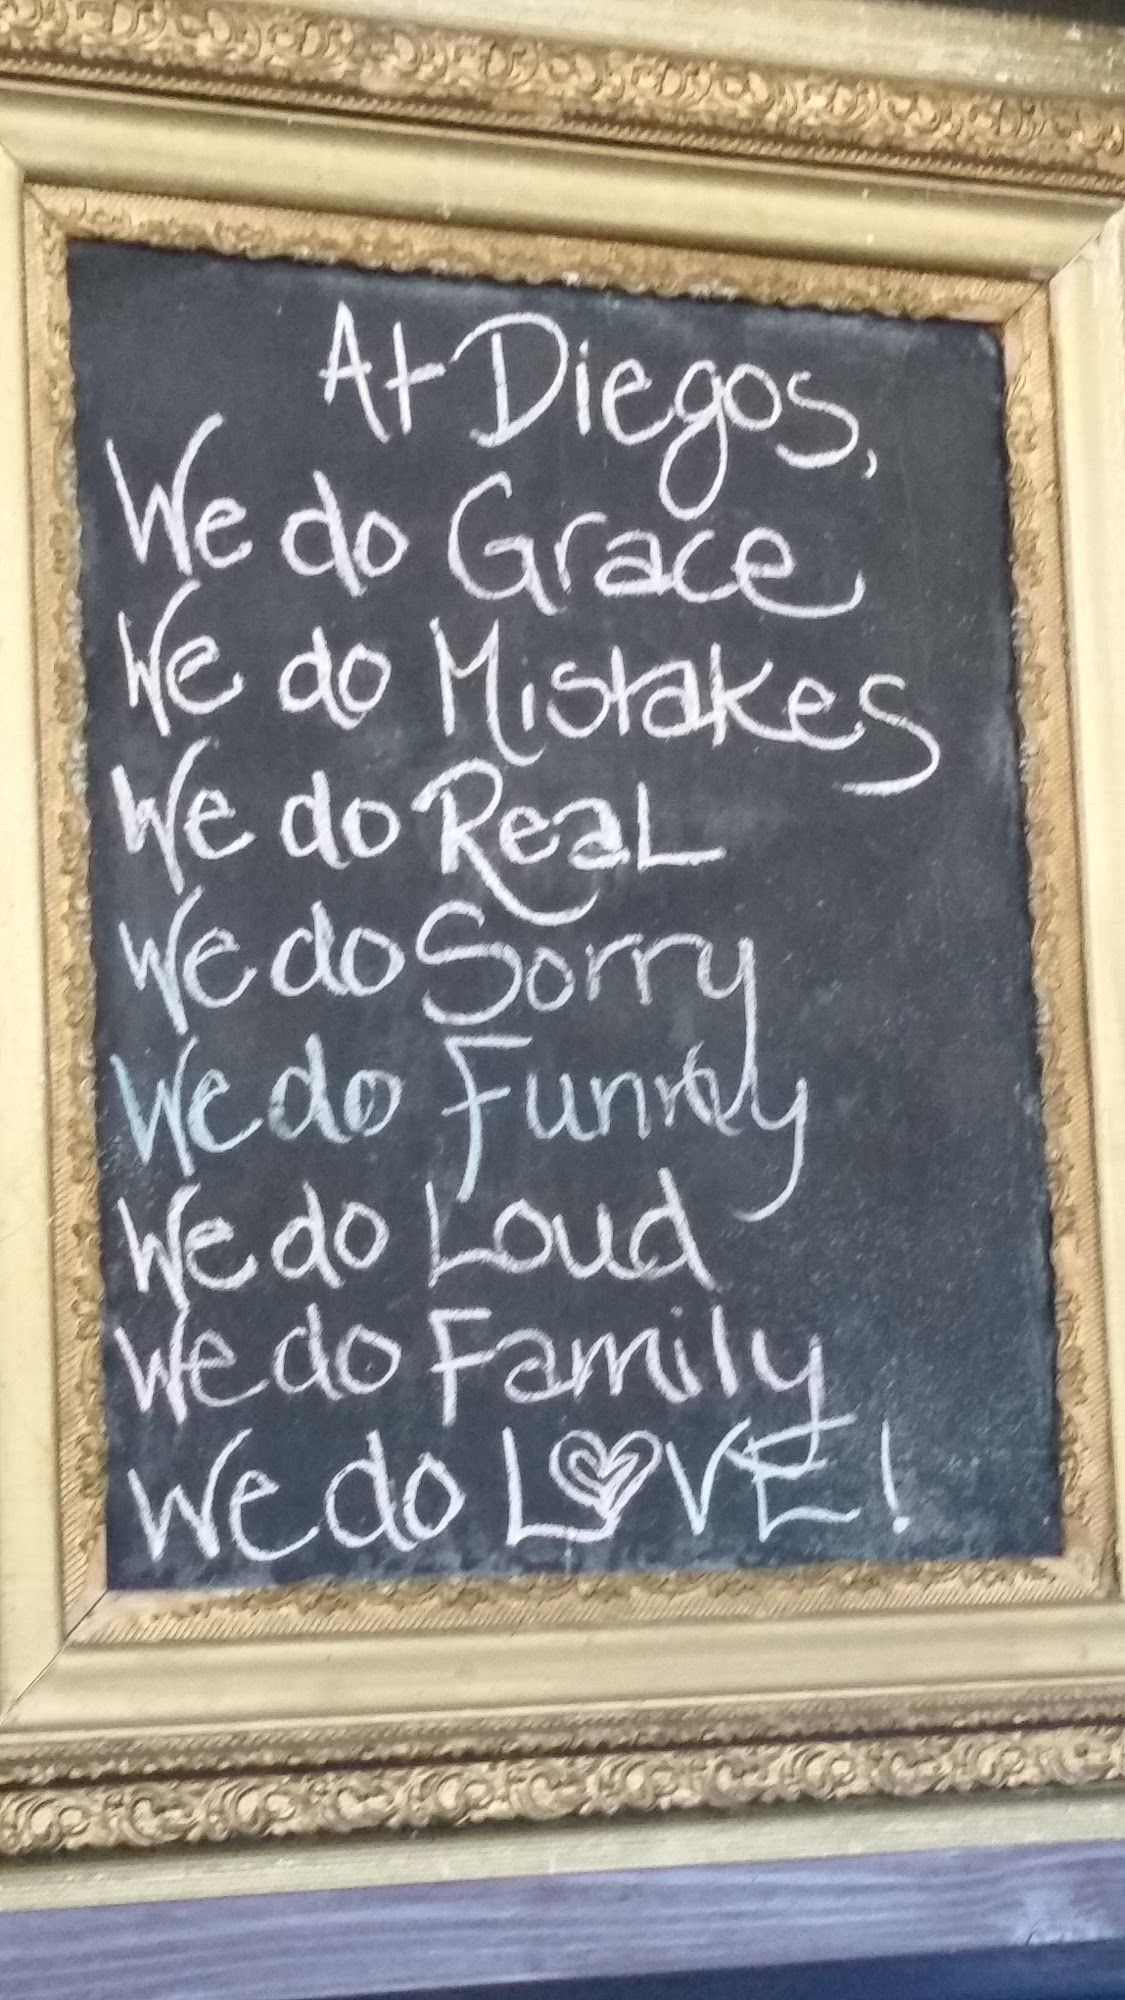 At Diegos,
We do Grace
We do Mistakes
We do Real
We do Sorry
We do Funny
We do Loud
We do Family
We do LOVE!